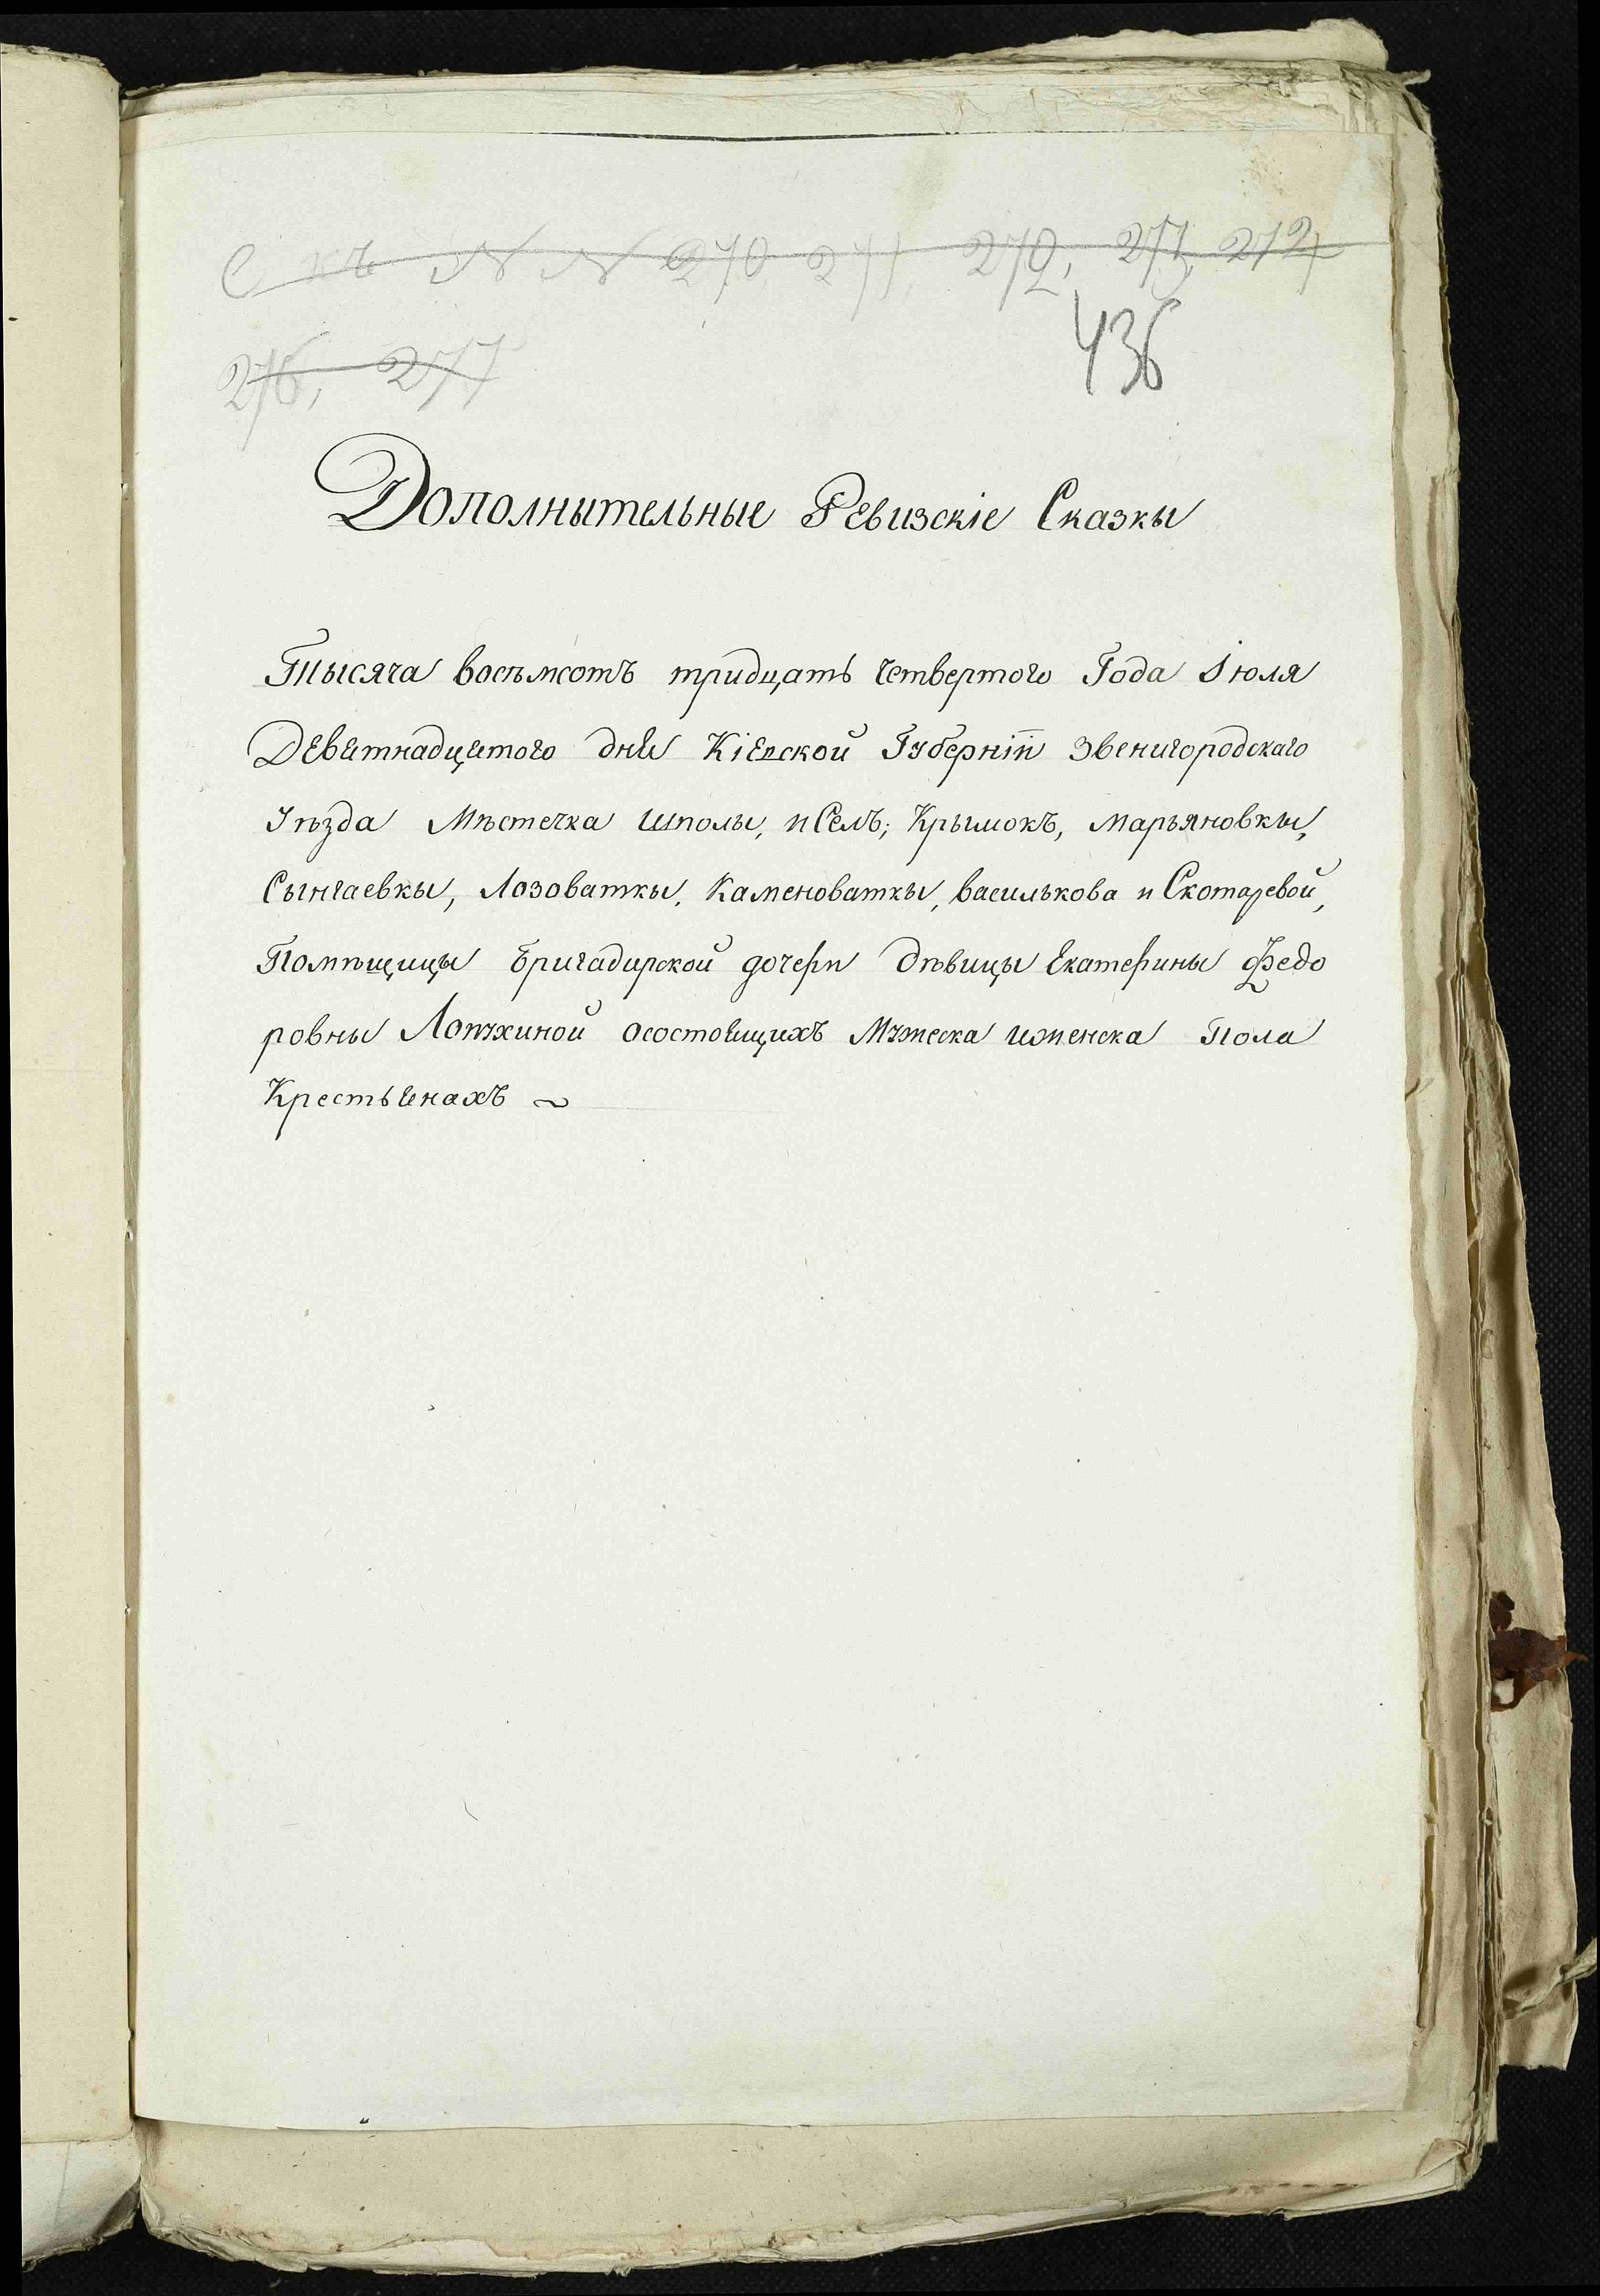 къ N N 270 271, 272, 273, 274
276, 277
436
Дополнытельные Ревизскіе Сказкы
Тысяча восъмсотъ тридцать четвертого Года Іюля
Деветнадцетого дня Кіевской Губерніи Звенигородскаго
Уѣзда Мѣстечка Шполы, и Селъ; Крымокъ, Марьяновкы,
Сынгаевкы, Лозоваткы, Каменоваткы, Василькова и Скотаревой,
Помѣщицы Бригадирской дочери Дѣвицы Екатерины Федо
ровны Лопухиной осостоящихъ Мужеска иженска Пола
Крестьянахъ ~